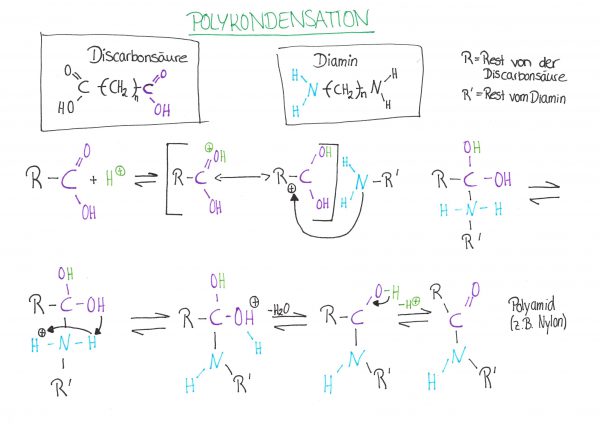 POLYKONDENSATION
Discarbonsäure
O O
C-(CH₂)n-C
HO OH
Diamin
H H
N-(CH₂)n N
H H
R=Rest von der
Discarbonsäure
R'=Rest vom Diamin
R-C O OH + H⊕ ⇌ [R-C ⊕OH OH ⟷ R-C⊕ OH OH] H H N-R'
OH
R-C-OH ⇌
H-N-H
R'
OH
R-C-OH
⊕
H-N-H
R'
⇌
OH
R-C-OH⊕
H
N
H R'
-H₂O
⇌
O-H
R-C
N
H R'
-H⊕
⇌
R O
C
N
H R'
Polyamid
(z.B. Nylon)